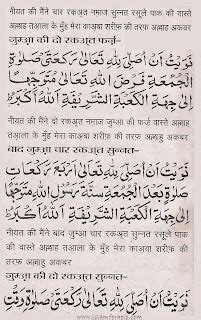 नीयत की मैंने चार रकअ़त नमाज सुन्नत रसूले पाक की वास्ते
अल्लाह तआ़ला के मुँह मेरा काअ़बा शरीफ़ की तरफ़ अल्लाहु अकबर
जुमआ़ की दो रकअ़त फर्ज-
نَوَيْتُ اَنْ اُصَلِّىَ لِلّٰهِ تَعَالٰى رَكْعَتَىْ صَلٰوةِ
الْجُمُعَةِ فَرْضَ اللّٰهِ تَعَالٰى مُتَوَجِّهًا
اِلٰى جِهَةِ الْكَعْبَةِ الشَّرِيْفَةِ اَللّٰهُ اَكْبَرُ
नीयत की मैंने दो रकअ़त नमाज जुमआ़ की फर्ज वास्ते
अल्लाह तआ़ला के मुँह मेरा काअ़बा शरीफ़ की तरफ़ अल्लाहु अकबर
बाद जुमआ़ चार रकअ़त सुन्नत-
نَوَيْتُ اَنْ اُصَلِّىَ لِلّٰهِ تَعَالٰى اَرْبَعَ رَكَعَاتِ
صَلٰوةِ بَعْدَ الْجُمُعَةِ سُنَّةُ رَسُوْلِ اللّٰهِ مُتَوَجِّهًا
اِلٰى جِهَةِ الْكَعْبَةِ الشَّرِيْفَةِ اَللّٰهُ اَكْبَرُ
नीयत की मैंने चार रकअ़त नमाज बाद जुमआ़ सुन्नत रसूले पाक
की वास्ते अल्लाह तआ़ला के मुँह मेरा काअ़बा शरीफ़ की तरफ़
अल्लाहु अकबर
जुमआ़ की दो रकअ़त सुन्नत-
نَوَيْتُ اَنْ اُصَلِّىَ لِلّٰهِ تَعَالٰى رَكْعَتَىْ صَلٰوةِ وَقْتِ